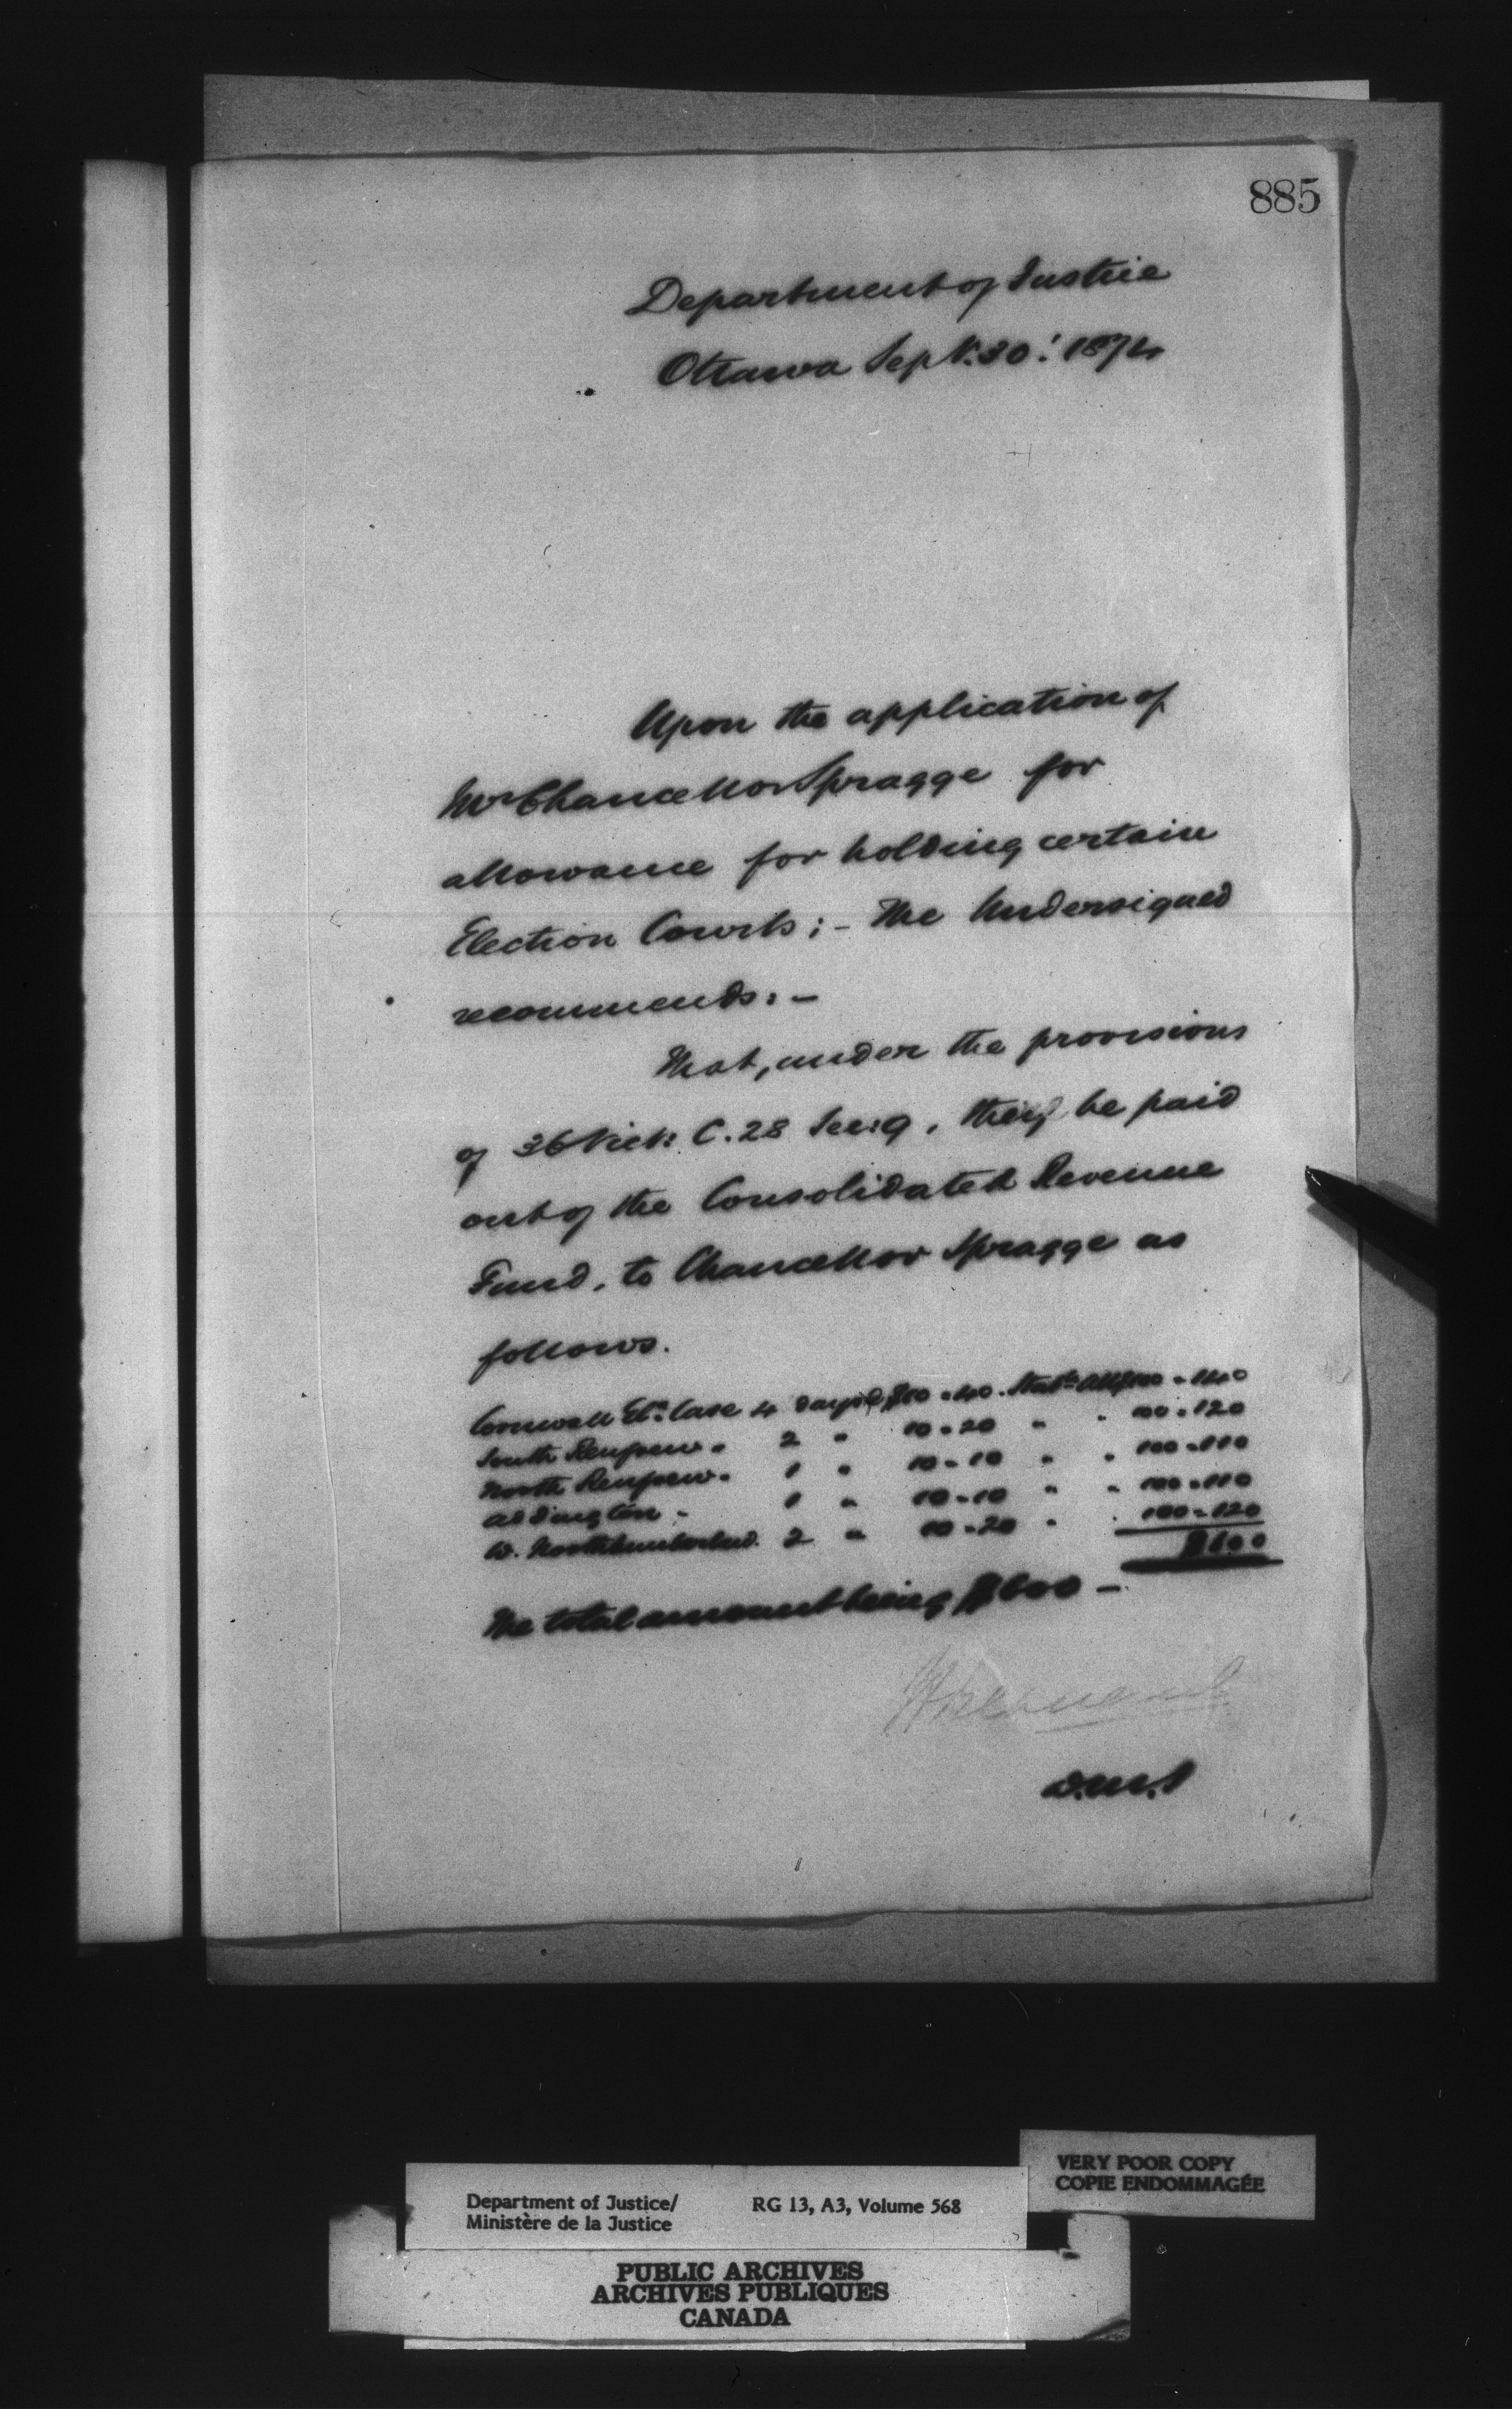 885
Department of Justice
Ottawa Sept. 30: 1874
Upon the application of
Mr Chancellor Spragge for
allowance for holding certain
Election Courts; - The Undersigned
recommends: -
That, under the provisions
of 36 Vict: C. 28 Sec: 9, they be paid
out of the Consolidated Revenue
Fund, to Chancellor Spragge as
follows.
Cornwall Eln. Case 4 days @ $10 = 40. Stat. All $100 = 140
South Renfrew " 2 " 10 = 20 " " 100 = 120
North Renfrew " 1 " 10 = 10 " " 100 = 110
Addington " 1 " 10 = 10 " " 100 = 110
W. Northumberland. 2 " 10 = 20 " " 100 = 120
$600
The total amount being $600 -
D.M.J
VERY POOR COPY
COPIE ENDOMMAGÉE
Department of Justice/ RG 13, A3, Volume 568
Ministère de la Justice
PUBLIC ARCHIVES
ARCHIVES PUBLIQUES
CANADA